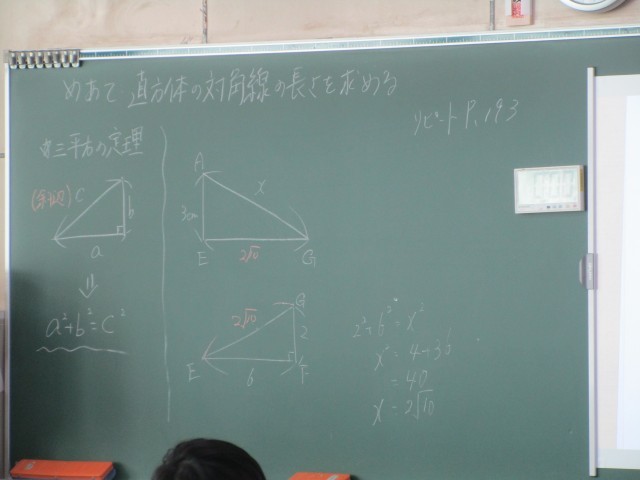 めあて 直方体の対角線の長さを求める
リピート P.193
三平方の定理
(斜辺) c
b
a
a²+b²=c²
A
x
E
2√10
G
G
2√10
2
E
6
F
2²+6²=x²
x²=4+36
=40
x=2√10